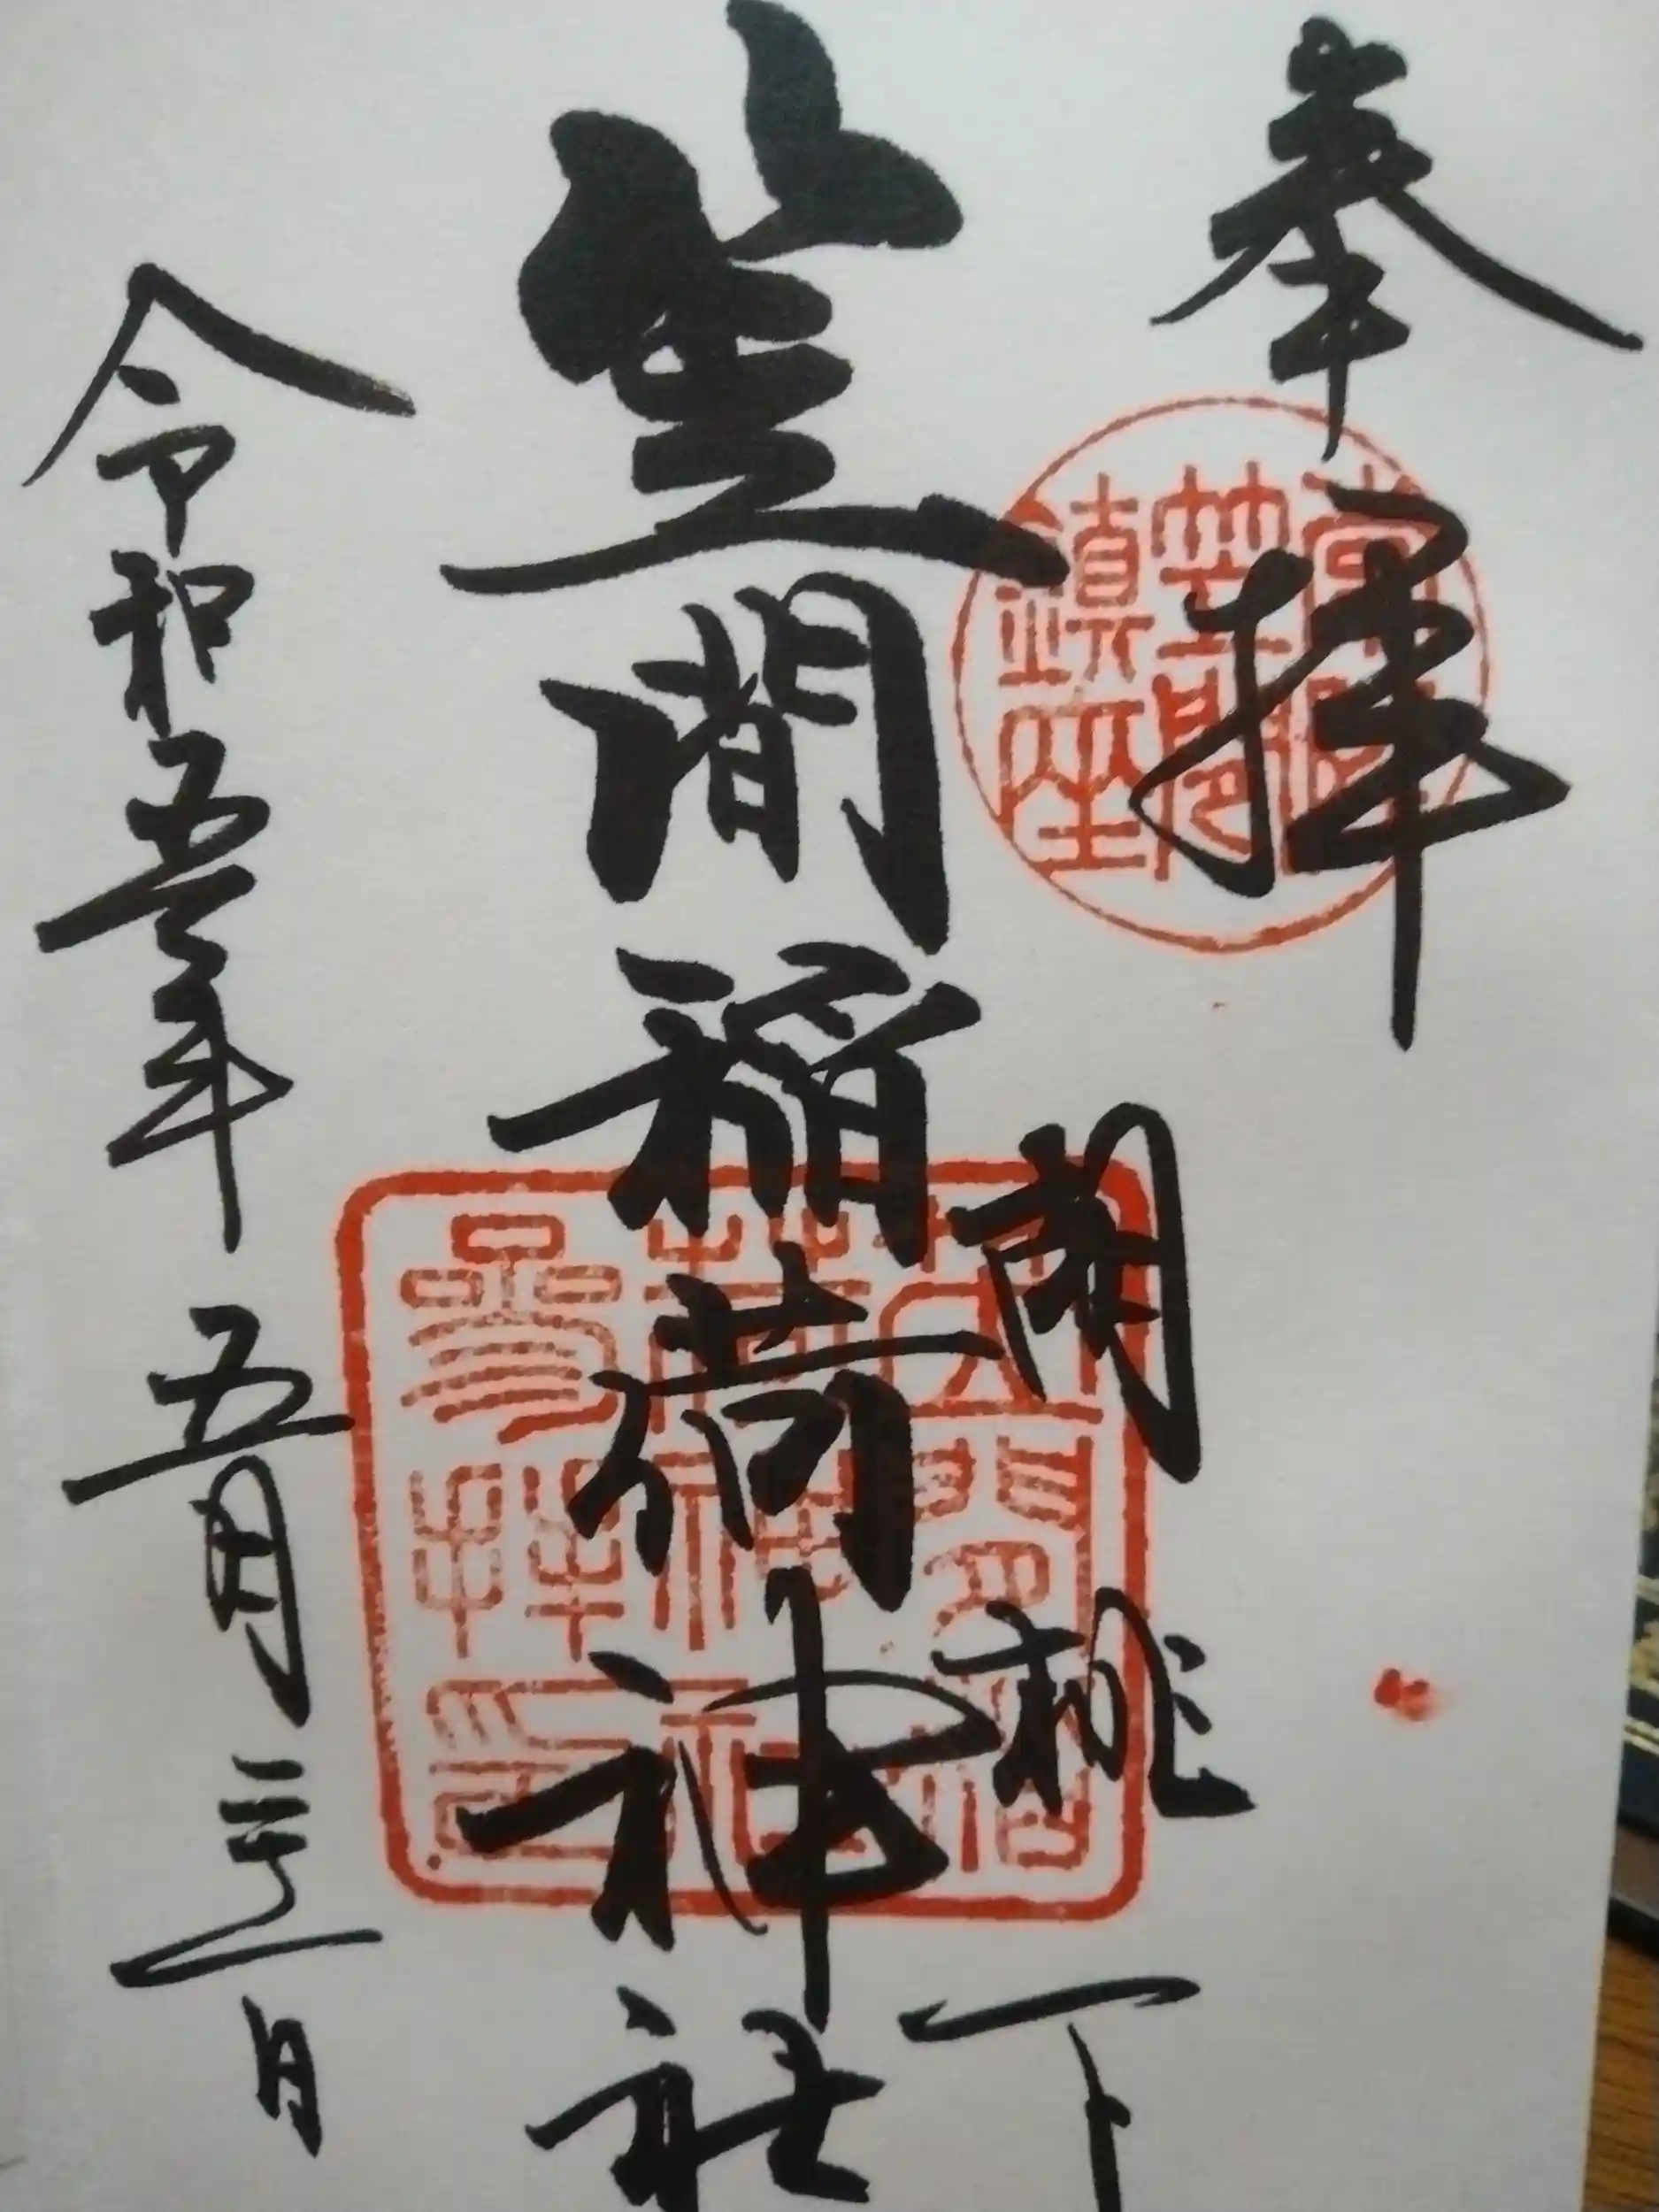 奉拝
常陸
笠間
鎮座
胡桃下
笠間稲荷神社
笠間稲
荷神社
參拜印
令和五年五月三日